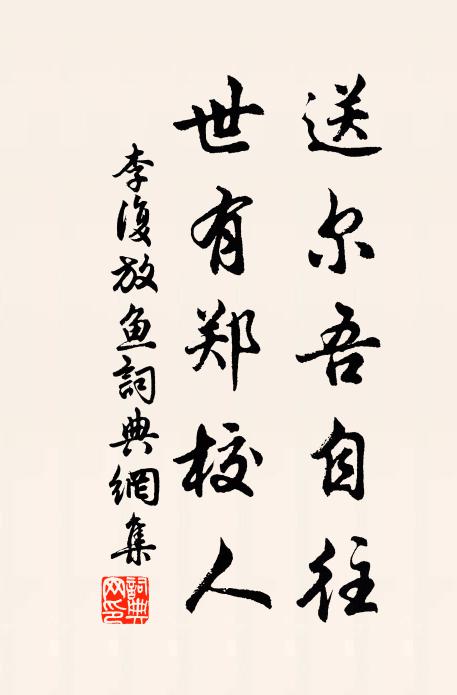 送尔吾自往
世有郑校人
李復放鱼詞典網集
詞典網印